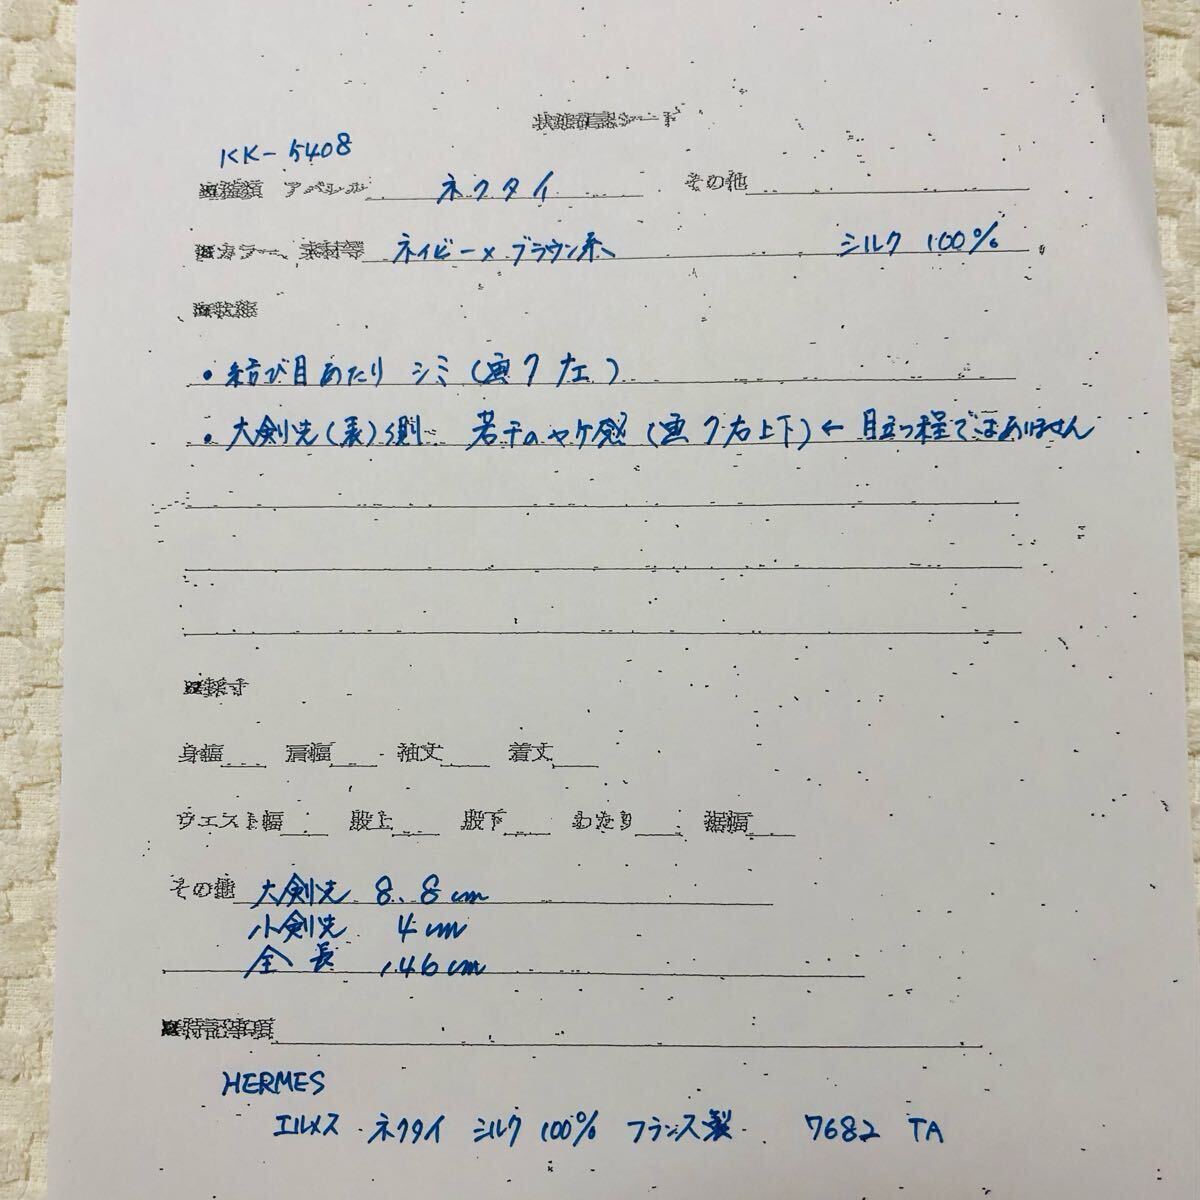 状態確認シート
KK-5408
■種類 アパレル ネクタイ その他
■カラー、素材等 ネイビー×ブラウン系 シルク 100%
■状態
・結び目あたり シミ (画7左)
・大剣先(表)側 若干のヤケ感 (画7右上下) ← 目立つ程ではありません
■採寸
身幅 肩幅 袖丈 着丈
ウエスト幅 股上 股下 わたり 裾幅
その他 大剣先 8.8cm
小剣先 4cm
全長 146cm
■特記事項
HERMES
エルメス ネクタイ シルク 100% フランス製 7682 TA